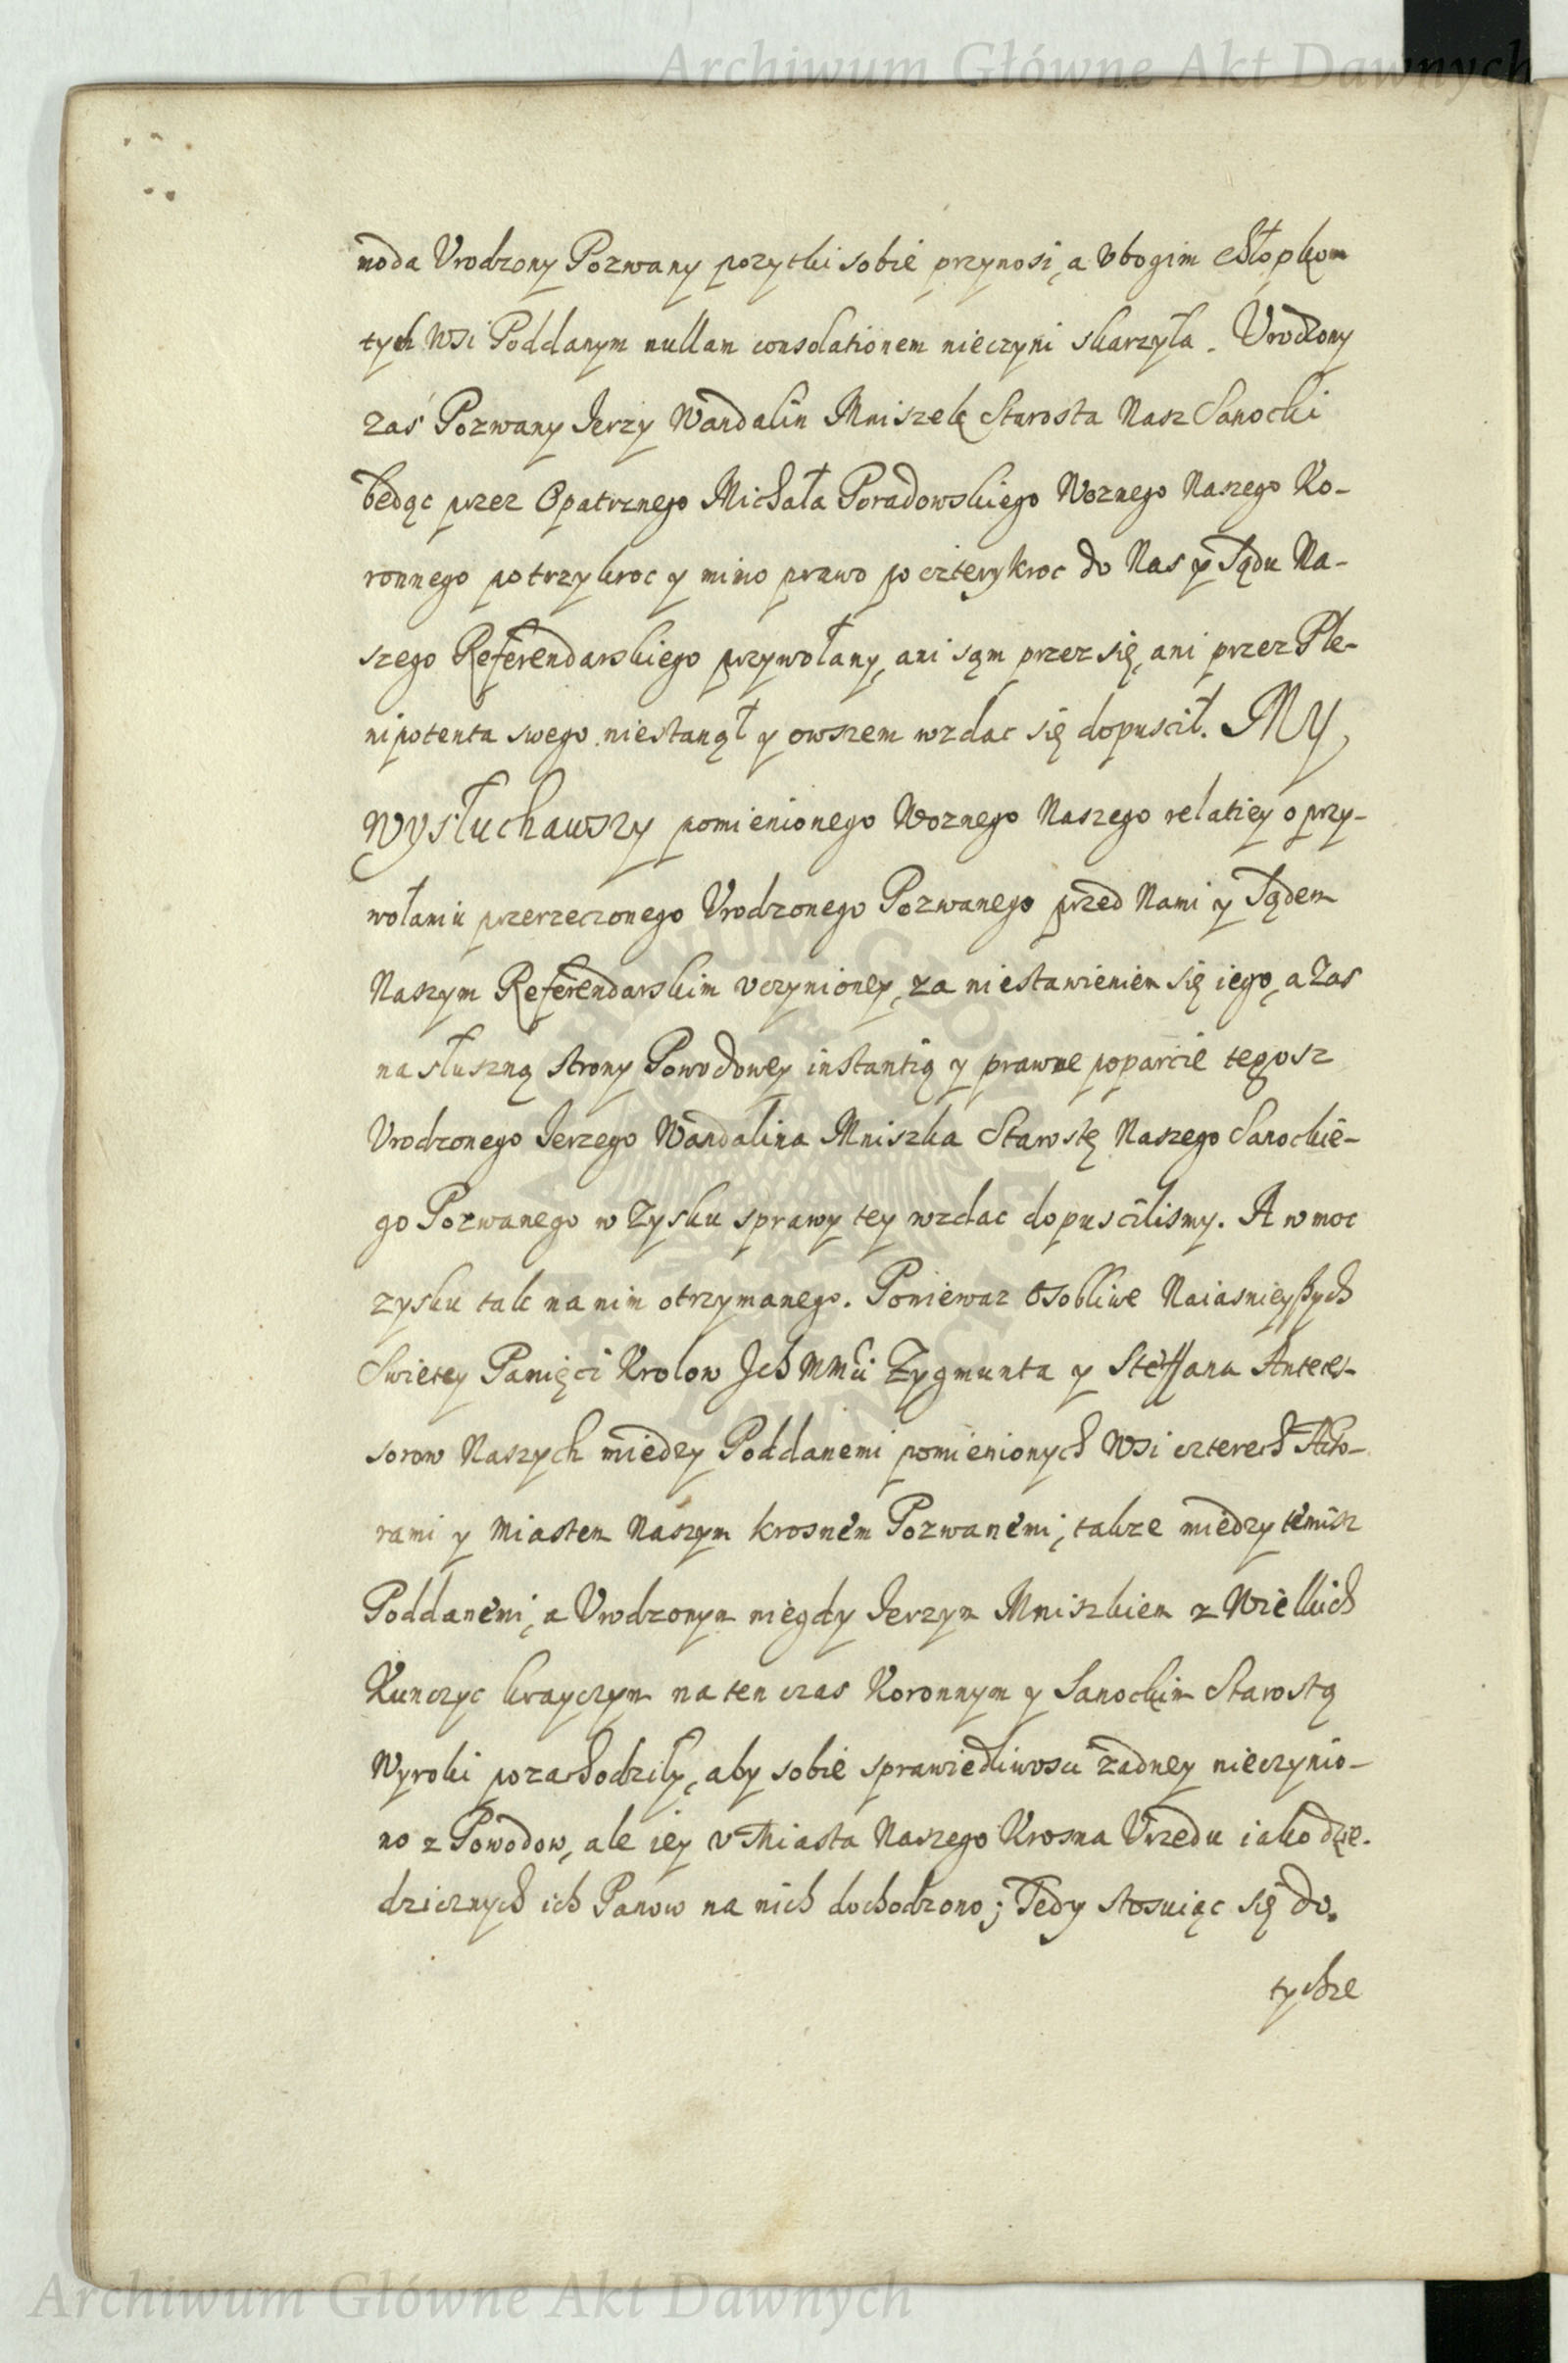 Archiwum Główne Akt Dawnych
noda Vrodzony Pozwany pozytki sobie przynosi, a vbogim chłopkom
tych Wsi Poddanym nullam consolationem nieczyni skarzyła. Vrodzony
zas Pozwany Jerzy Wandalin Mniszek Starosta Nasz Sanocki
będąc przez Opatrznego Michała Poradowskiego Woznego Naszego Ko-
ronnego potrzykroc y mimo prawo po czterykroc do Nas y Sądu Na-
szego Referendarskiego przywołany, ani sąm przez się, ani przez Ple-
nipotenta swego niestanął y owszem wzdac się dopuscił. MY
wysłuchawszy pomienionego Woznego Naszego relatiey o przy-
wołaniu przerzeczonego Vrodzonego Pozwanego przed Nami y Sądem
Naszym Referendarskim vczynioney, za niestawieniem się iego, a zas
na słuszną strony Powodowey instantią y prawne poparcie tegosz
Vrodzonego Jerzego Wandalina Mniszka Starostę Naszego Sanockie-
go Pozwanego w Zysku sprawy tey wzdac dopuscilismy. A w moc
zysku tak na nim otrzymanego. Poniewaz osobliwe Naiasnieyßych
Swietey Pamięci Krolow Ich Mmći Zygmunta y Steffana Anteces-
sorow Naszych miedzy Poddanemi pomienionych Wsi czterech Akto-
rami y Miastem Naszym krosnem Pozwanemi, takze miedzy temisz
Poddanemi, a Vrodzonym niegdy Jerzym Mniszkiem z Wielkich
Kunczyc krayczym na ten czas Koronnym y Sanockim Starostą
Wyroki pozachodziły, aby sobie sprawiedliwosci zadney nieczynio-
no z Powodow, ale iey v Miasta Naszego Krosna Vrzedu iako dzie-
dzicznych ich Panow na nich dochodzono; Tedy stosuiąc się do
tychze
Archiwum Główne Akt Dawnych